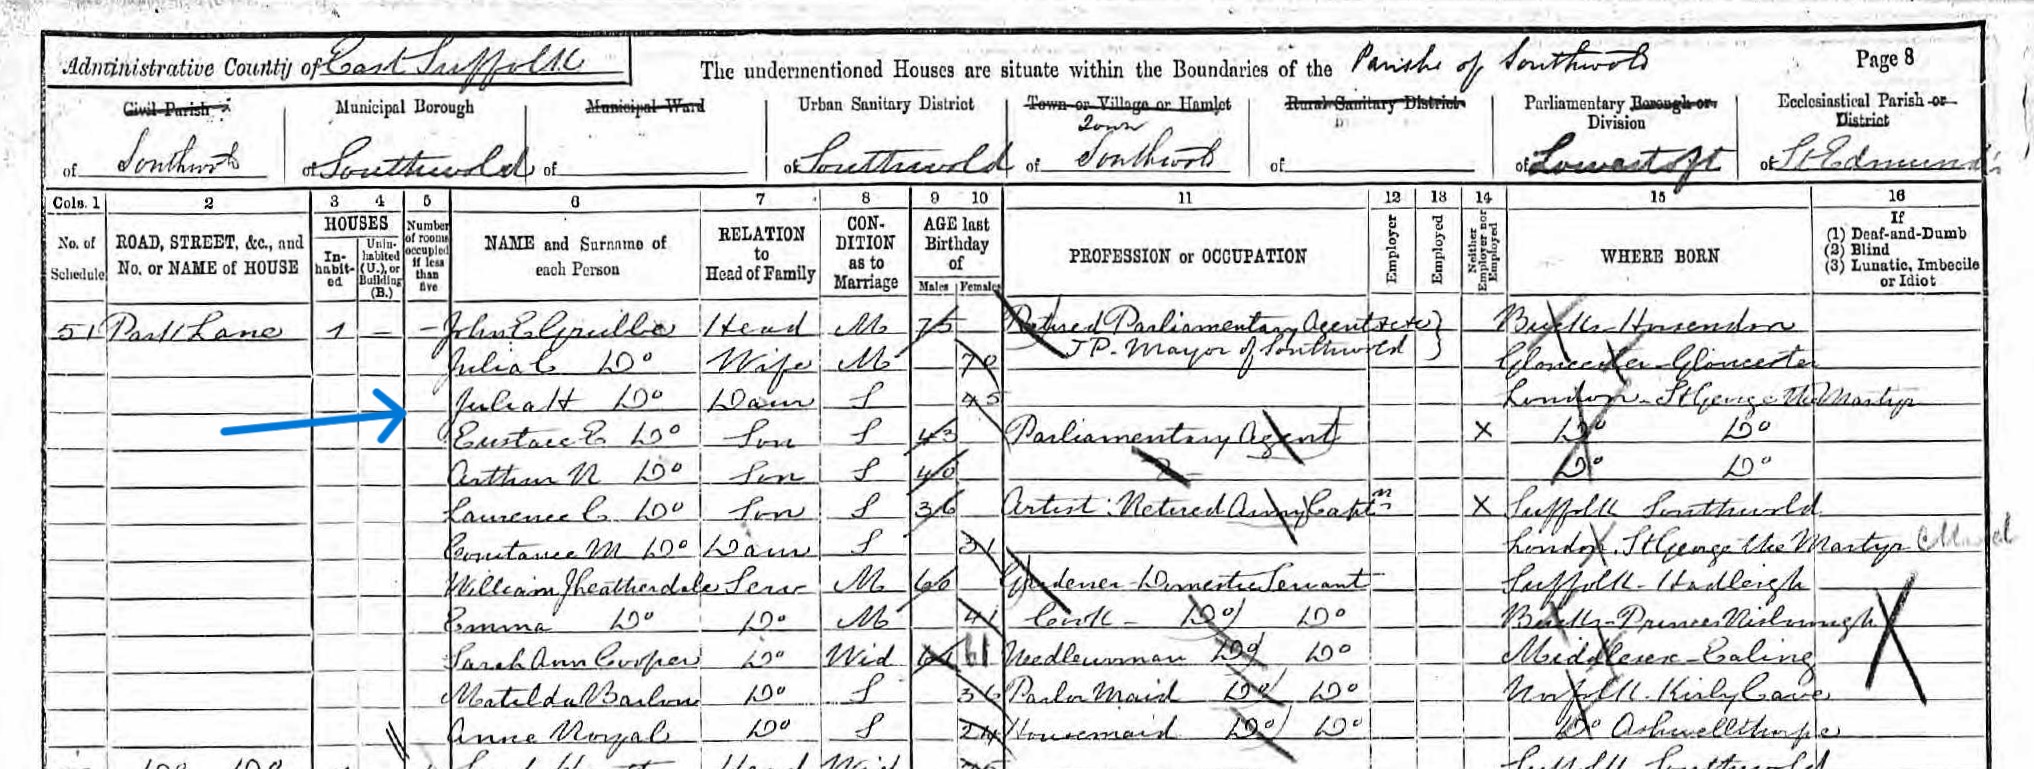 Administrative County of East Suffolk
The undermentioned Houses are situate within the Boundaries of the Parishe of Southwold
Page 8
Civil Parish of Southwold
Municipal Borough of Southwold
Municipal Ward of
Urban Sanitary District of Southwold
Town or Village or Hamlet of Town Southwold
Rural Sanitary District of
Parliamentary Borough or Division of Lowestoft
Ecclesiastical Parish or District of St Edmund's
Cols. 1 2 3 4 5 6 7 8 9 10 11 12 13 14 15 16
No. of Schedule
ROAD, STREET, &c., and No. or NAME of HOUSE
HOUSES
In-habit-ed
Unin-habited (U.), or Building (B.)
Number of rooms occupied if less than five
NAME and Surname of each Person
RELATION to Head of Family
CON-DITION as to Marriage
AGE last Birthday of
Males Females
PROFESSION or OCCUPATION
Employer
Employed
Neither Employer nor Employed
WHERE BORN
If
(1) Deaf-and-Dumb
(2) Blind
(3) Lunatic, Imbecile or Idiot
51 Park Lane 1 – – John E Grubbe Head M 75 Retired Parliamentary Agent &c &c } Bucks Horsendon
Julia C Do Wife M 70 J P. Mayor of Southwold } Gloucester Gloucester
Julia H Do Daur S 45 London St George the Martyr
Eustace E Do Son S 43 Parliamentary Agent X Do Do
Arthur N Do Son S 40 – Do Do
Laurence C Do Son S 36 Artist Retired Army Captn X Suffolk Southwold
Constance M Do Daur S 31 London St George the Martyr
William J Heatherdale Serv M 60 Gardener Domestic Servant Suffolk Hadleigh
Emma Do Do M 41 Cook – Do Do Bucks Princes Risborough
Sarah Ann Cooper Do Wid 61 61 Needlewoman Do Do Middlesex – Ealing
Matilda Barlow Do S 36 Parlor Maid Do Do Norfolk Kirby Cane
Anne Royal Do S 24 Housemaid Do Do Do Ashwellthorpe
Do Do Head Wid Suffolk Southwold